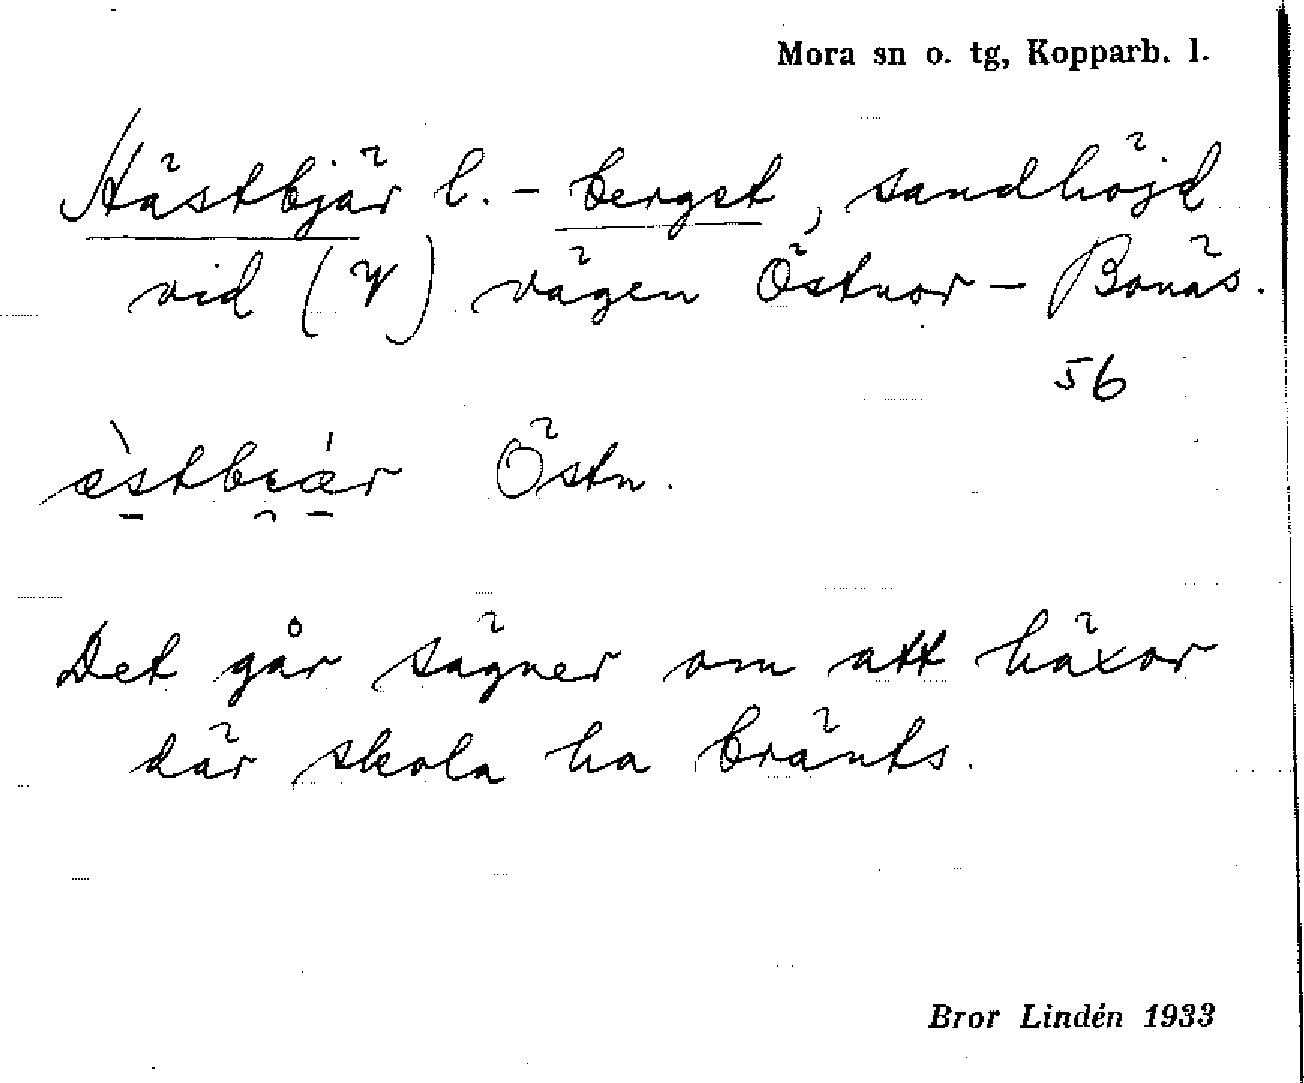 Mora sn o. tg, Kopparb. l.
Hästbjär l. - berget, sandhöjd
vid (V) vägen Östnor - Bonäs.
56
æ̀stbi̯ǽr Östn.
Det går sägner om att häxor
där skola ha bränts.
Bror Lindén 1933